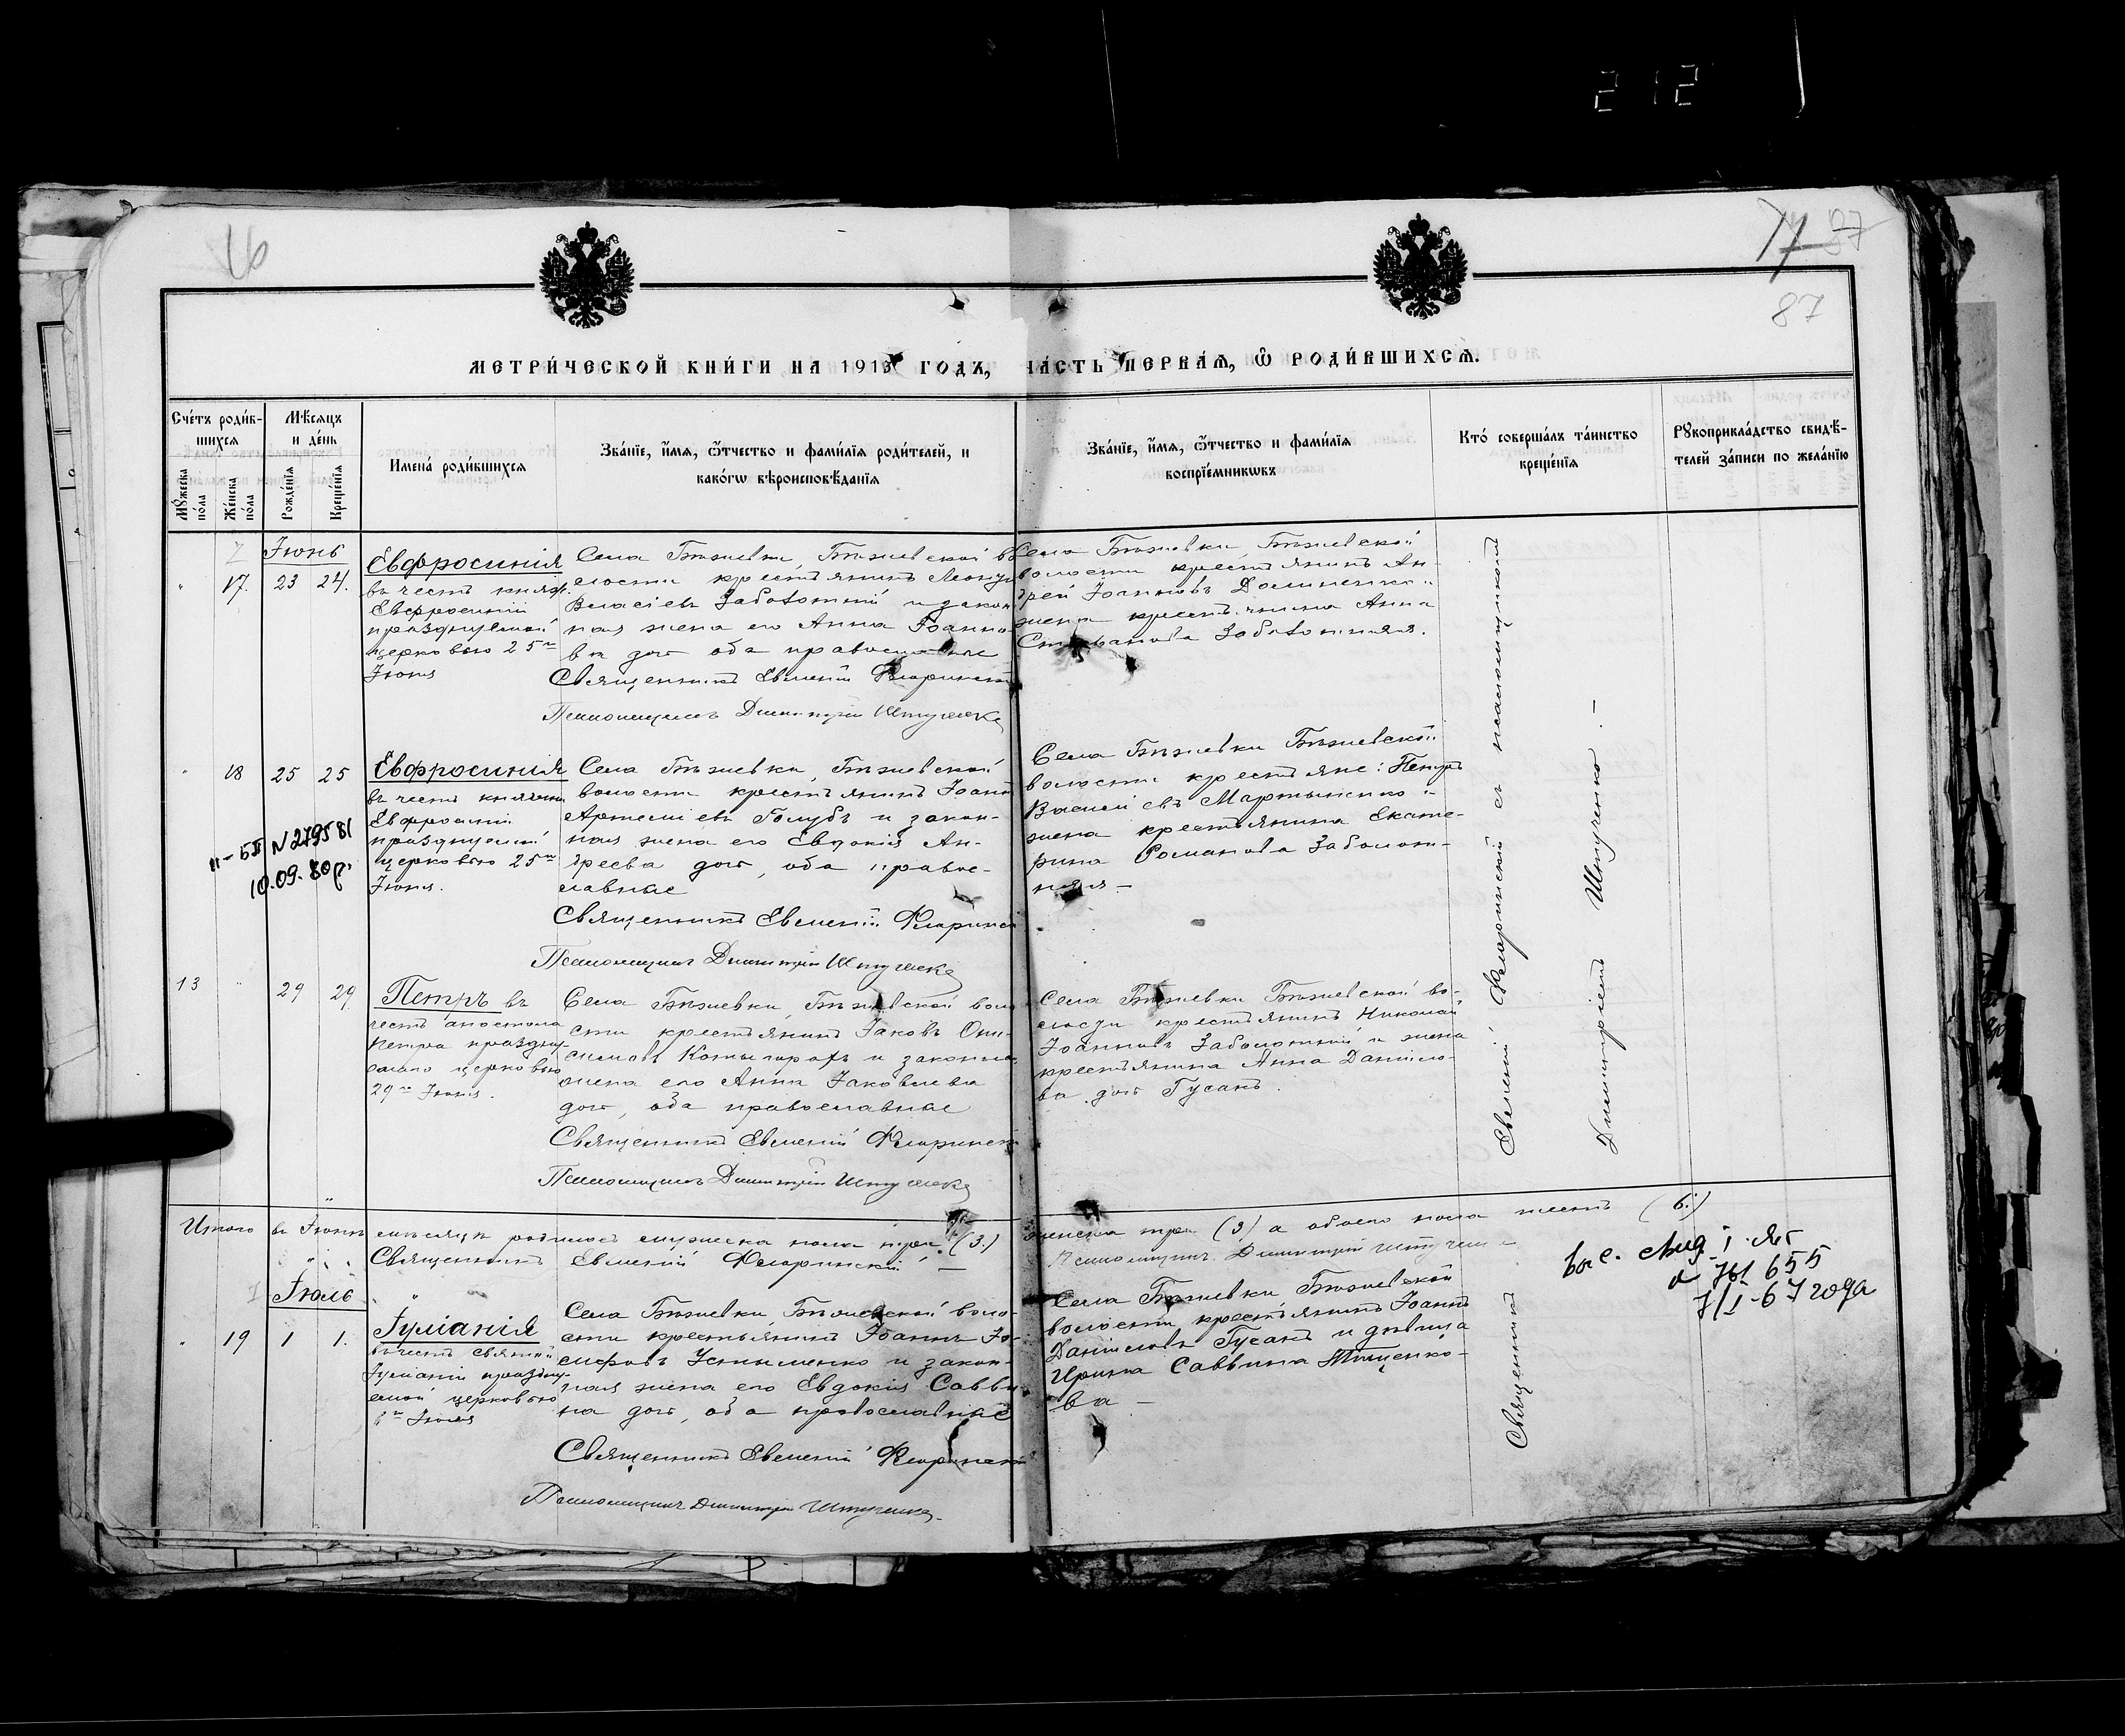 212
16
77 87
87
МЕТРИ́ЧЕСКОЙ КНИ́ГИ НА 1913 ГОДЪ, ЧА́СТЬ ПЕРВАЯ, Ѿ РОДИ́ВШИХСЯ.
Сче́тъ роди́в-
шихся
Му́жеска по́ла
Же́нска по́ла
Мѣ́сяцъ
и де́нь
Рожде́нія
Креще́нія
Имена́ роди́вшихся
Зва́ніе, и́мя, ѿтчество и фами́лія роди́телей, и
како́гѡ вѣроисповѣ́данія
Зва́ніе, и́мя, ѿтчество и фами́лія
воспріе́мникѡвъ
Кто́ соверша́лъ та́инство
креще́нія
Рꙋкоприкла́дство свидѣ́-
телей за́писи по жела́нію
Іюнь
" 17. 23 24.
Евфросинія
въ честь княг.
Евфросиніи
празднуемой
церковью 25го
Іюня
Села Бѣзиевки, Бѣзиевской во
лости крестьянинъ
Власіевъ Заболотній и закон
ная жена его Анна Іоанно-
ва дог оба православные
Священникъ Евменій Флоринскій
Псаломщикъ Димитрій Штученко
Села Бѣзиевки, Бѣзиевской
волости крестьянинъ Ан-
дрей Іоанновъ и
жена крестьянина Анна
Стефанова Заболотняя.
" 18 25 25
Евфросинія
въ честь княгини
Евфросиніи
празднуемой
церковью 25го
Іюня.
II-БП N279581
10.09.80г.
Села Бѣзиевки, Бѣзиевской
волости крестьянинъ Іоаннъ
Артеміевъ Голубъ и закон-
ная жена его Евдокія Ан-
дреева дог, оба право-
славные
Священникъ Евменій Флоринскій
Псаломщикъ Димитрій Штученко
Села Бѣзиевки Бѣзиевской
волости крестьяне: Петръ
Василіевъ Мартыненко и
жена крестьянина Екате-
рина Романова Заболот-
няя –
13 " 29 29
Петръ въ
честь апостола
Петра праздну-
емаго церковью
29го Іюня.
Села Бѣзиевки, Бѣзиевской воло
сти крестьянинъ Іаковъ Они-
симовъ и законная
жена его Анна Іаковлева
дог, оба православные
Священникъ Евменій Флоринскій
Псаломщикъ Димитрій Штученко
Села Бѣзиевки Бѣзиевской во-
лости крестьянинъ Николай
Іоанновъ Заболотній и жена
крестьянина Анна Даніило-
ва дог Гусакъ.
Евменій Флоринскій съ псаломщикомъ
Димитріемъ Штученко. –
Итого въ Іюнѣ мѣсяцѣ родилось мужеска пола три (3.) женска три (3) а обоего пола шесть (6.)
Священникъ Евменій Флоринскій –
Псаломщикъ Димитрій Штученко
Іюль
" 19 1 1.
Іуліанія
въ честь святой
Іуліаніи праздну-
емой церковью
1го Іюля
Села Бѣзиевки, Бѣзиевской воло-
сти крестьянинъ Іоаннъ Іо-
сифовъ Устименко и закон-
ная жена его Евдокія Савви-
на дог, оба православные
Священникъ Евменій Флоринскій
Псаломщикъ Димитрій Штученко.
Села Бѣзиевки Бѣзиевской
волости крестьянинъ Іоаннъ
Даніиловъ Гусакъ и дѣвица
Ирина Саввина Тищенко-
ва –
Священникъ
655
7/I-67 года